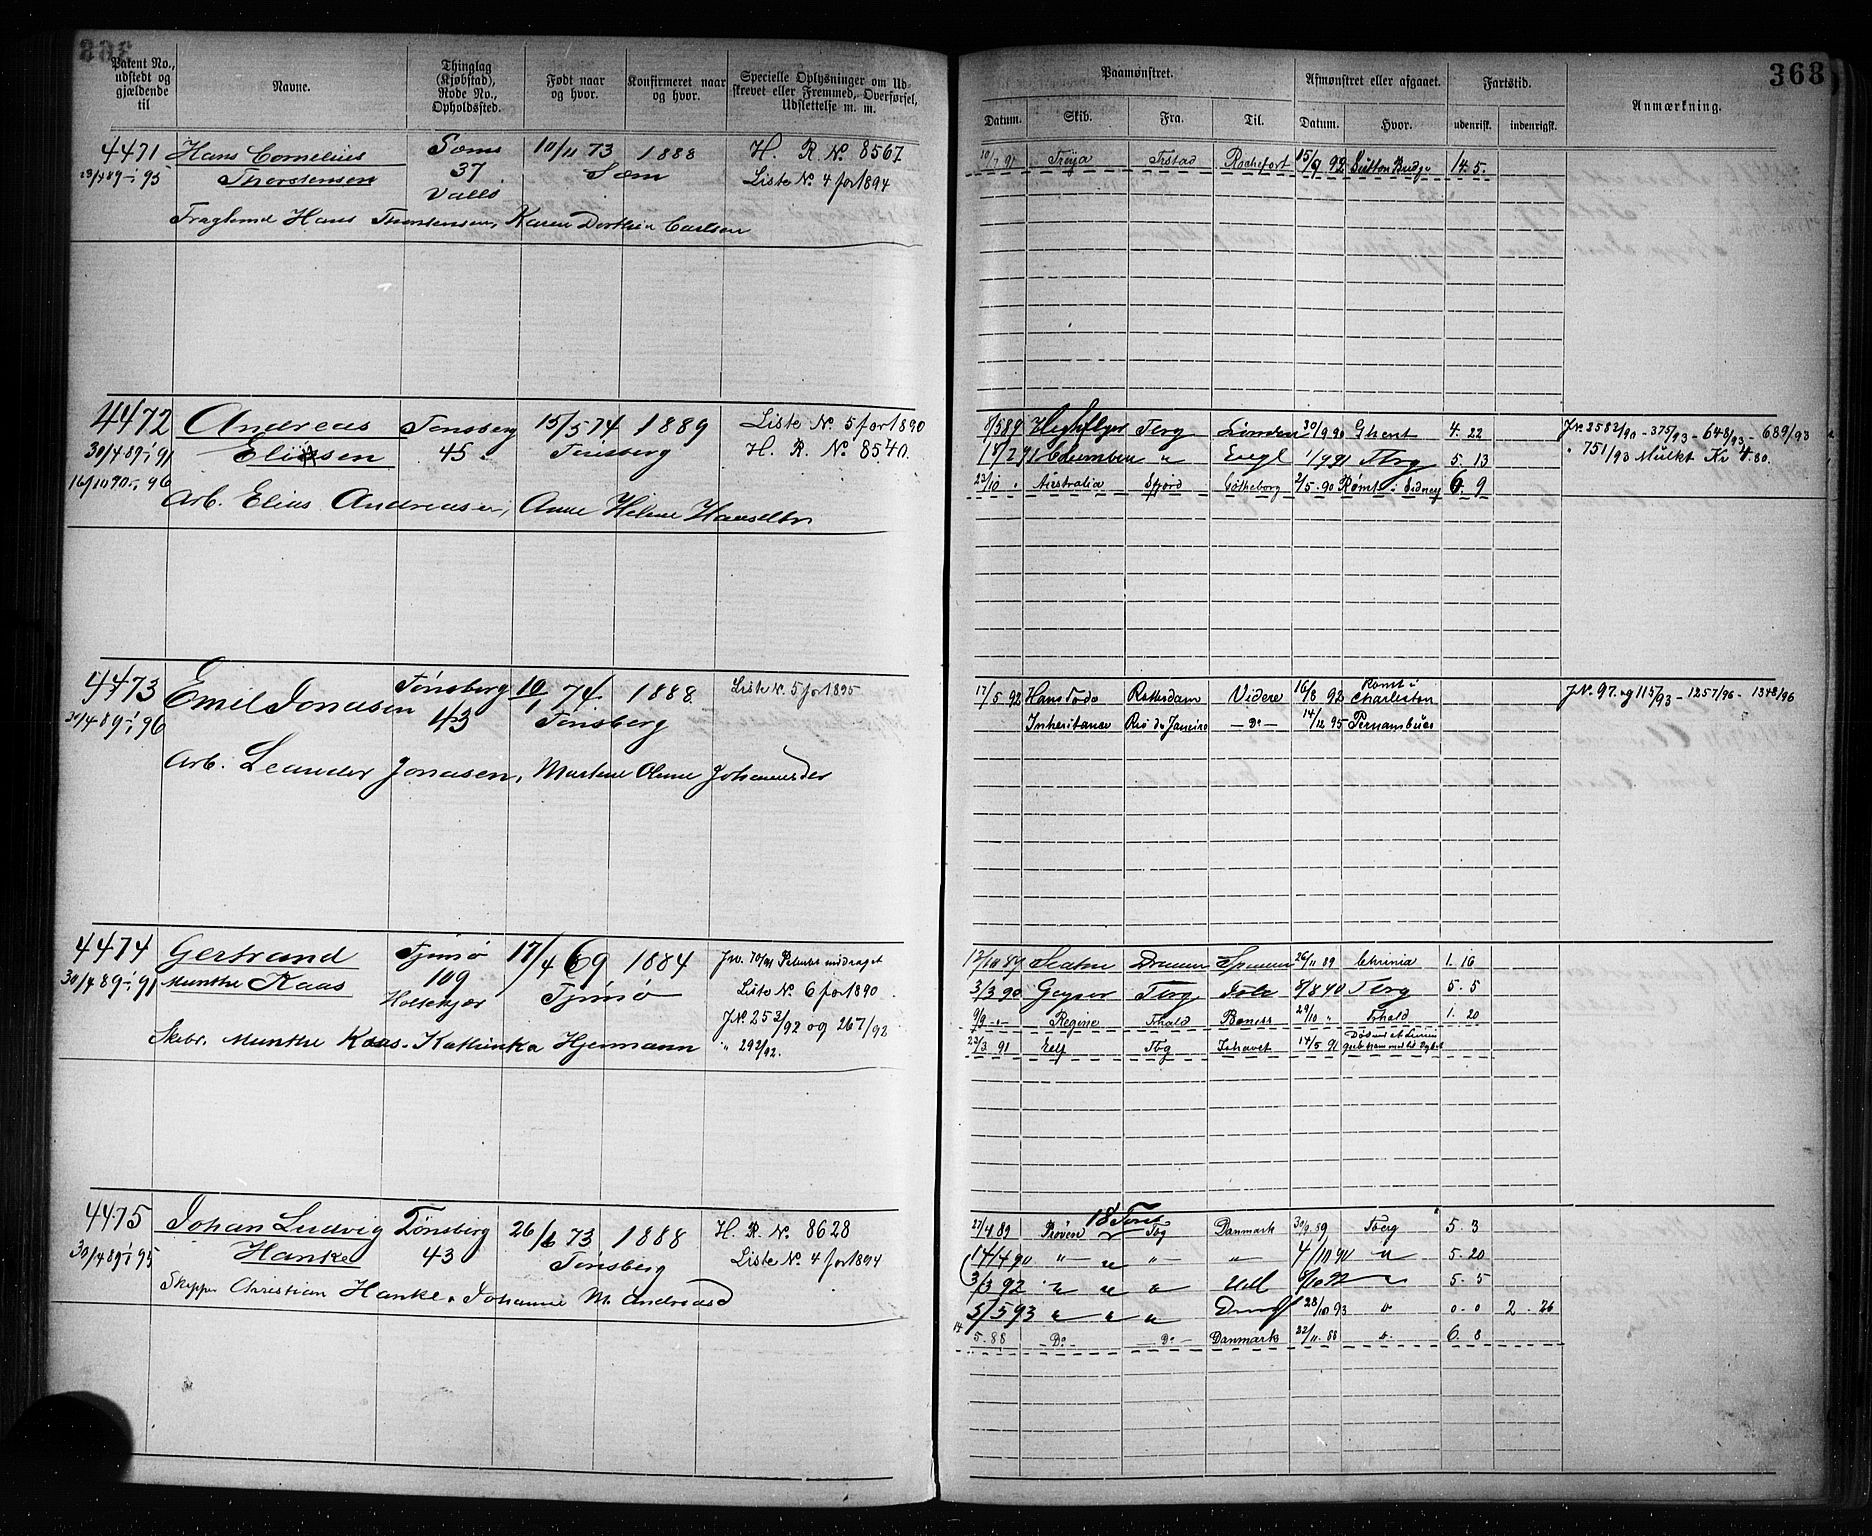 368
Patent No., udstedt og gjældende til
Navne.
Thinglag (Kjøbstad), Rode No., Opholdssted.
Født naar og hvor.
Konfirmeret naar og hvor.
Specielle Oplysninger om Udskrevet eller Fremmed, Overførsel, Udslettelse m. m.
Paamønstret.
Afmønstret eller afgaaet.
Fartstid.
Anmærkning.
Datum. Skib. Fra. Til. Datum. Hvor. udenrigsk. indenrigsk.
4471 Hans Cornelius Sæms 10/11 73 1888 H. R. No. 8567
23/4 89 - 1/1 95 Thorstensen 37 Sæm Liste No. 4 for 1894
Valls
Hans Thorstensen, Karen Dorthea Carlsen
10/7 91 Trøja Frstad Rochefort 15/9 92 Sutton Bridge 14. 5.
4472 Andreas Tønsberg 15/5 74 1889 Liste No. 5 for 1890
30/4 89 - 1/1 91 Eliasen 45. Tønsberg H. R. No. 8540.
16/10 90 - 96
Arb. Elias Andreasen, Anne Helene Hansdtr
8/5 89 Highflyer Tbrg London 30/9 90 Ghent 4. 22
18/2 91 Columbia " Engl 1/9 91 Tbrg 5. 13
23/10 " Australia Sfjord Gøtheborg 2/5 - 90 Rømt i Sidney 6. 9
J No. 2582/90 - 375/93 - 648/93 - 689/93
" 751/93 Mulkt Kr 4.80.
4473 Emil Jonasen Tønsberg 10/1 74 1888 Liste No. 5 for 1895
30/4 89 - 1/1 96 43 Tønsberg
Arb. Leander Jonasen, Martine Olene Johannesdtr
17/5 92 Hans Tode Rotterdam Videre 16/8 92 Rømt i Charleston
Inheritance Rio de Janeiro - Do - 14/12 95 Pernambuco
J No. 97. og 115/93 - 1257/96 - 1348/96
4474 Gertrand Tjømø 17/4 69 1884
30/4 89 - 1/1 91 Munthe Kaas 109 Tjømø Liste No. 6 for 1890
Holtekjær J No. 253/92 og 267/92
" 292/92.
Skibr. Munthe Kaas. Kathinka Hjermann
3/3 90 Geyser Tbrg 8/8 90 Tbrg 5. 5
9/9 - Regine Frhald Boness 29/10 " Frhald 1. 20
23/3 91 Tbg Ishavet 14/5 91
4475 Johan Ludvig Tønsberg 26/6 73 1888 H. R. No. 8628
30/4 89 - 1/1 95 Hanke 43 Tønsberg Liste No. 4 for 1894
Skipper Christian Hanke. Johanne M. Andreasd
27/4 89 Prøven 18 Tons Tbg Danmark 30/9 89 Tberg 5. 3
14/4 90 " " " " 4/10 90 " 5. 20
3/3 92 " " " Udl 8/10 92 " 5. 5
5/5 93 " " " 28/10 93 " 0. 0 2. 26
14/5. 88 Do - Do - Danmark 22/11. 88 " 6. 8